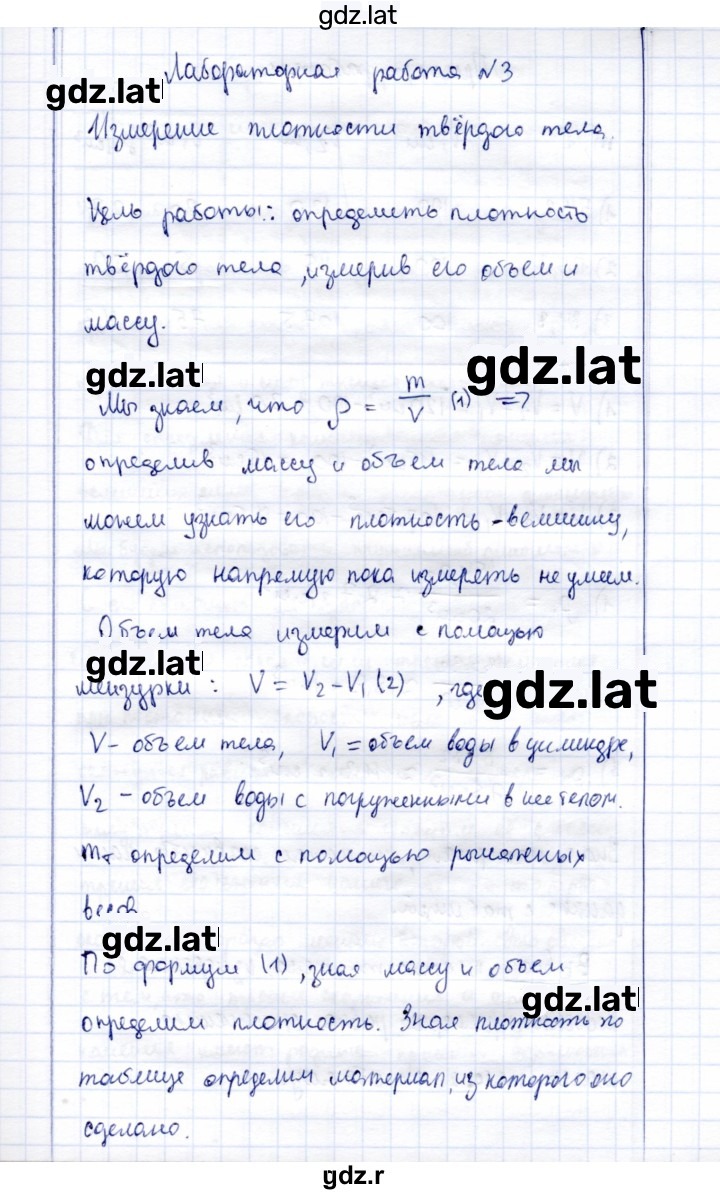 gdz.lat
Лабораторная работа №3
gdz.lat
Измерение плотности твёрдого тела.
Цель работы: определить плотность
твёрдого тела, измерив его объем и
массу.
gdz.lat
gdz.lat
Мы знаем, что ρ = m/V (1) =>
определив массу и объем тела мы
можем узнать его плотность - величину,
которую напрямую пока измерять не умеем.
Объем тела измерим с помощью
gdz.lat
мензурки : V = V₂ - V₁ (2) , где
gdz.lat
V - объем тела, V₁ = объем воды в цилиндре,
V₂ - объем воды с погруженными в нее телом.
mт определим с помощью рычажных
gdz.lat
По формуле (1), зная массу и объем
gdz.lat
определим плотность. Зная плотность по
таблице определим материал, из которого оно
сделано.
gdz.r